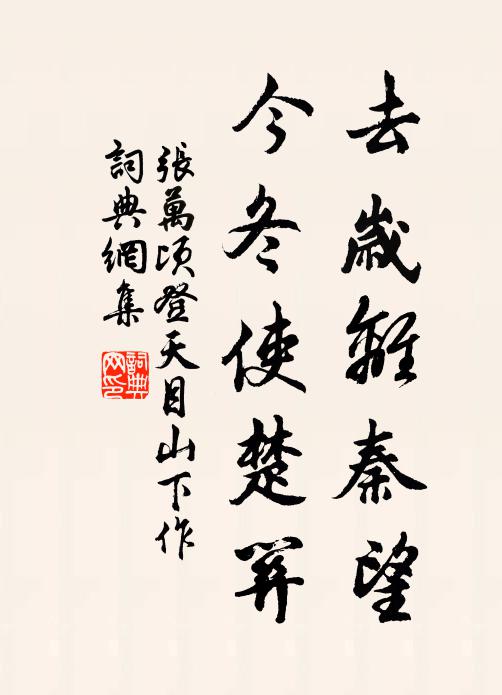 去歲離秦望
今冬使楚關
張萬頃登天目山下作
詞典網集
詞典
网印